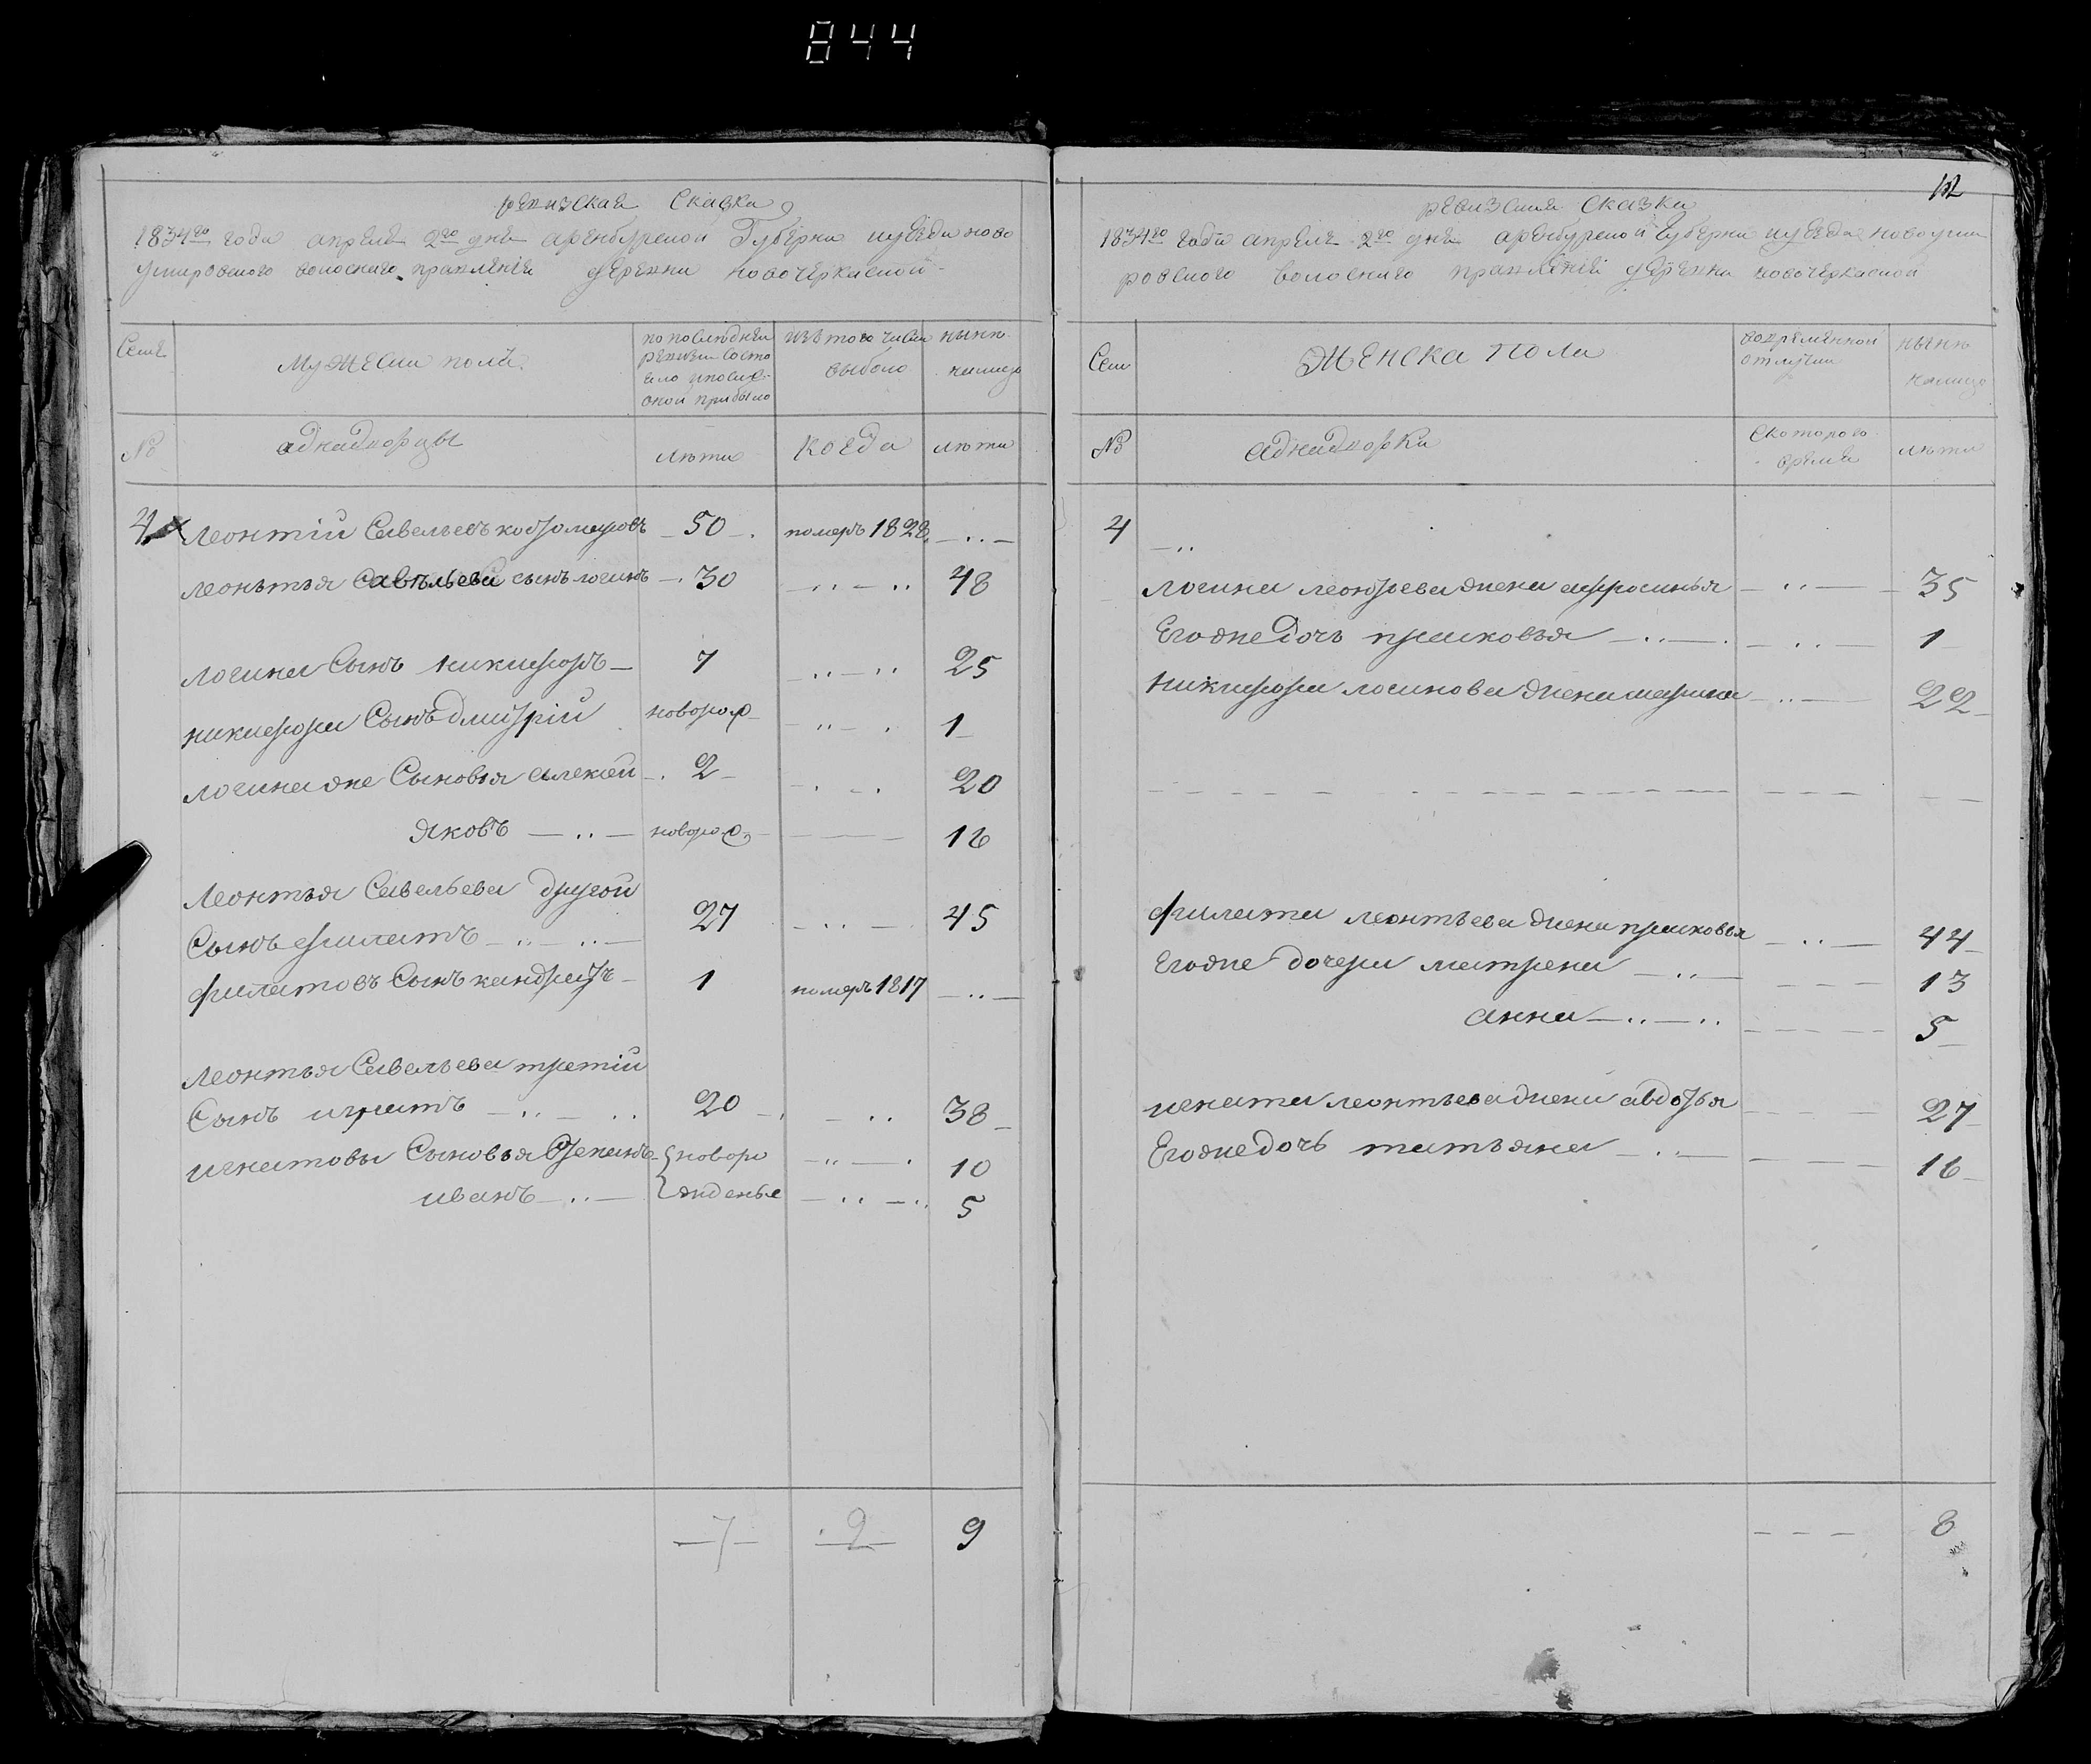 844
ревизская Сказка
1834го года апреля 2го дня аренбурской Губерни иуезда ново
умировского волоснаго правления деревни новочеркаской
Семе
Мужеска пола
по последней
ревизи состо
яло и после
оной прибыло
изъ того числа
выболо
ныне
налицо
№
аднадворцы
лета
когда
лета
4 леонтій Савельевъ 50 померъ 1828
леонтья Савельева сынъ логинъ 30 48
логина Сынъ никифоръ 7 25
никифора Сынъ дмитрій новорож 1
логина же Сыновья алексей 2 20
яковъ новорож 16
леонтья Савельева другой
Сынъ филатъ 27 45
филатовъ Сынъ кандратъ 1 померъ 1817
леонтья Савельева третій
Сынъ игнатъ 20 38
игнатовы Сыновья Степанъ новоро 10
иванъ жденые 5
7 2 9
12
ревизская Сказка
1834го года апреля 2го дня аренбурской Губерни иуезда новоуми
ровского волоснаго правления деревни новочеркаской
Сем
Женска пола
вовременной
отлучки
ныне
налицо
№
аднадворки
Скоторого
время
лета
4
логина леонтьева жена афросинья 35
Егоже Дочь прасковья 1
никифора логинова жена марья 22
филата леонтьева жена прасковья 44
Егоже дочери матрена 13
анна 5
игната леонтьева жена авдотья 27
Егоже дочь татьяна 16
8